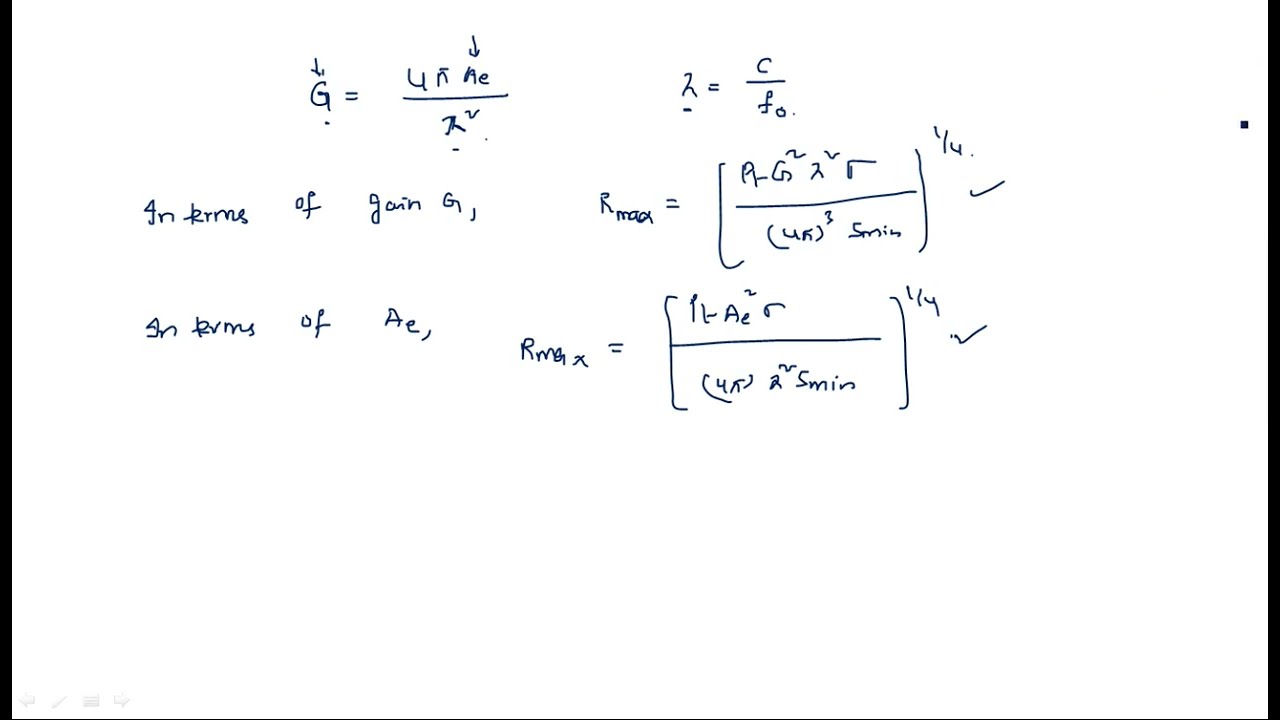 G = 4π Ae / λ²
λ = c / f₀.
In terms of gain G, Rmax = [ Pt G² λ² σ / (4π)³ Smin ]^1/4.
In terms of Ae, Rmax = [ Pt Ae² σ / (4π) λ² Smin ]^1/4